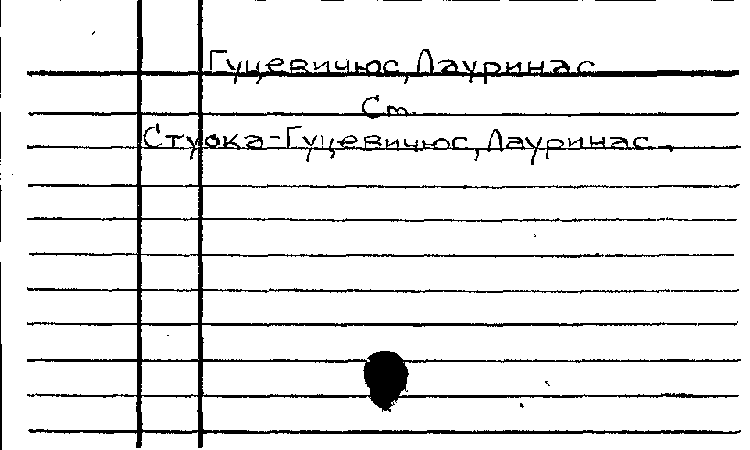 Гуцевичюс, Лауринас
Ст.
Стуока-Гуцевичюс, Лауринас.